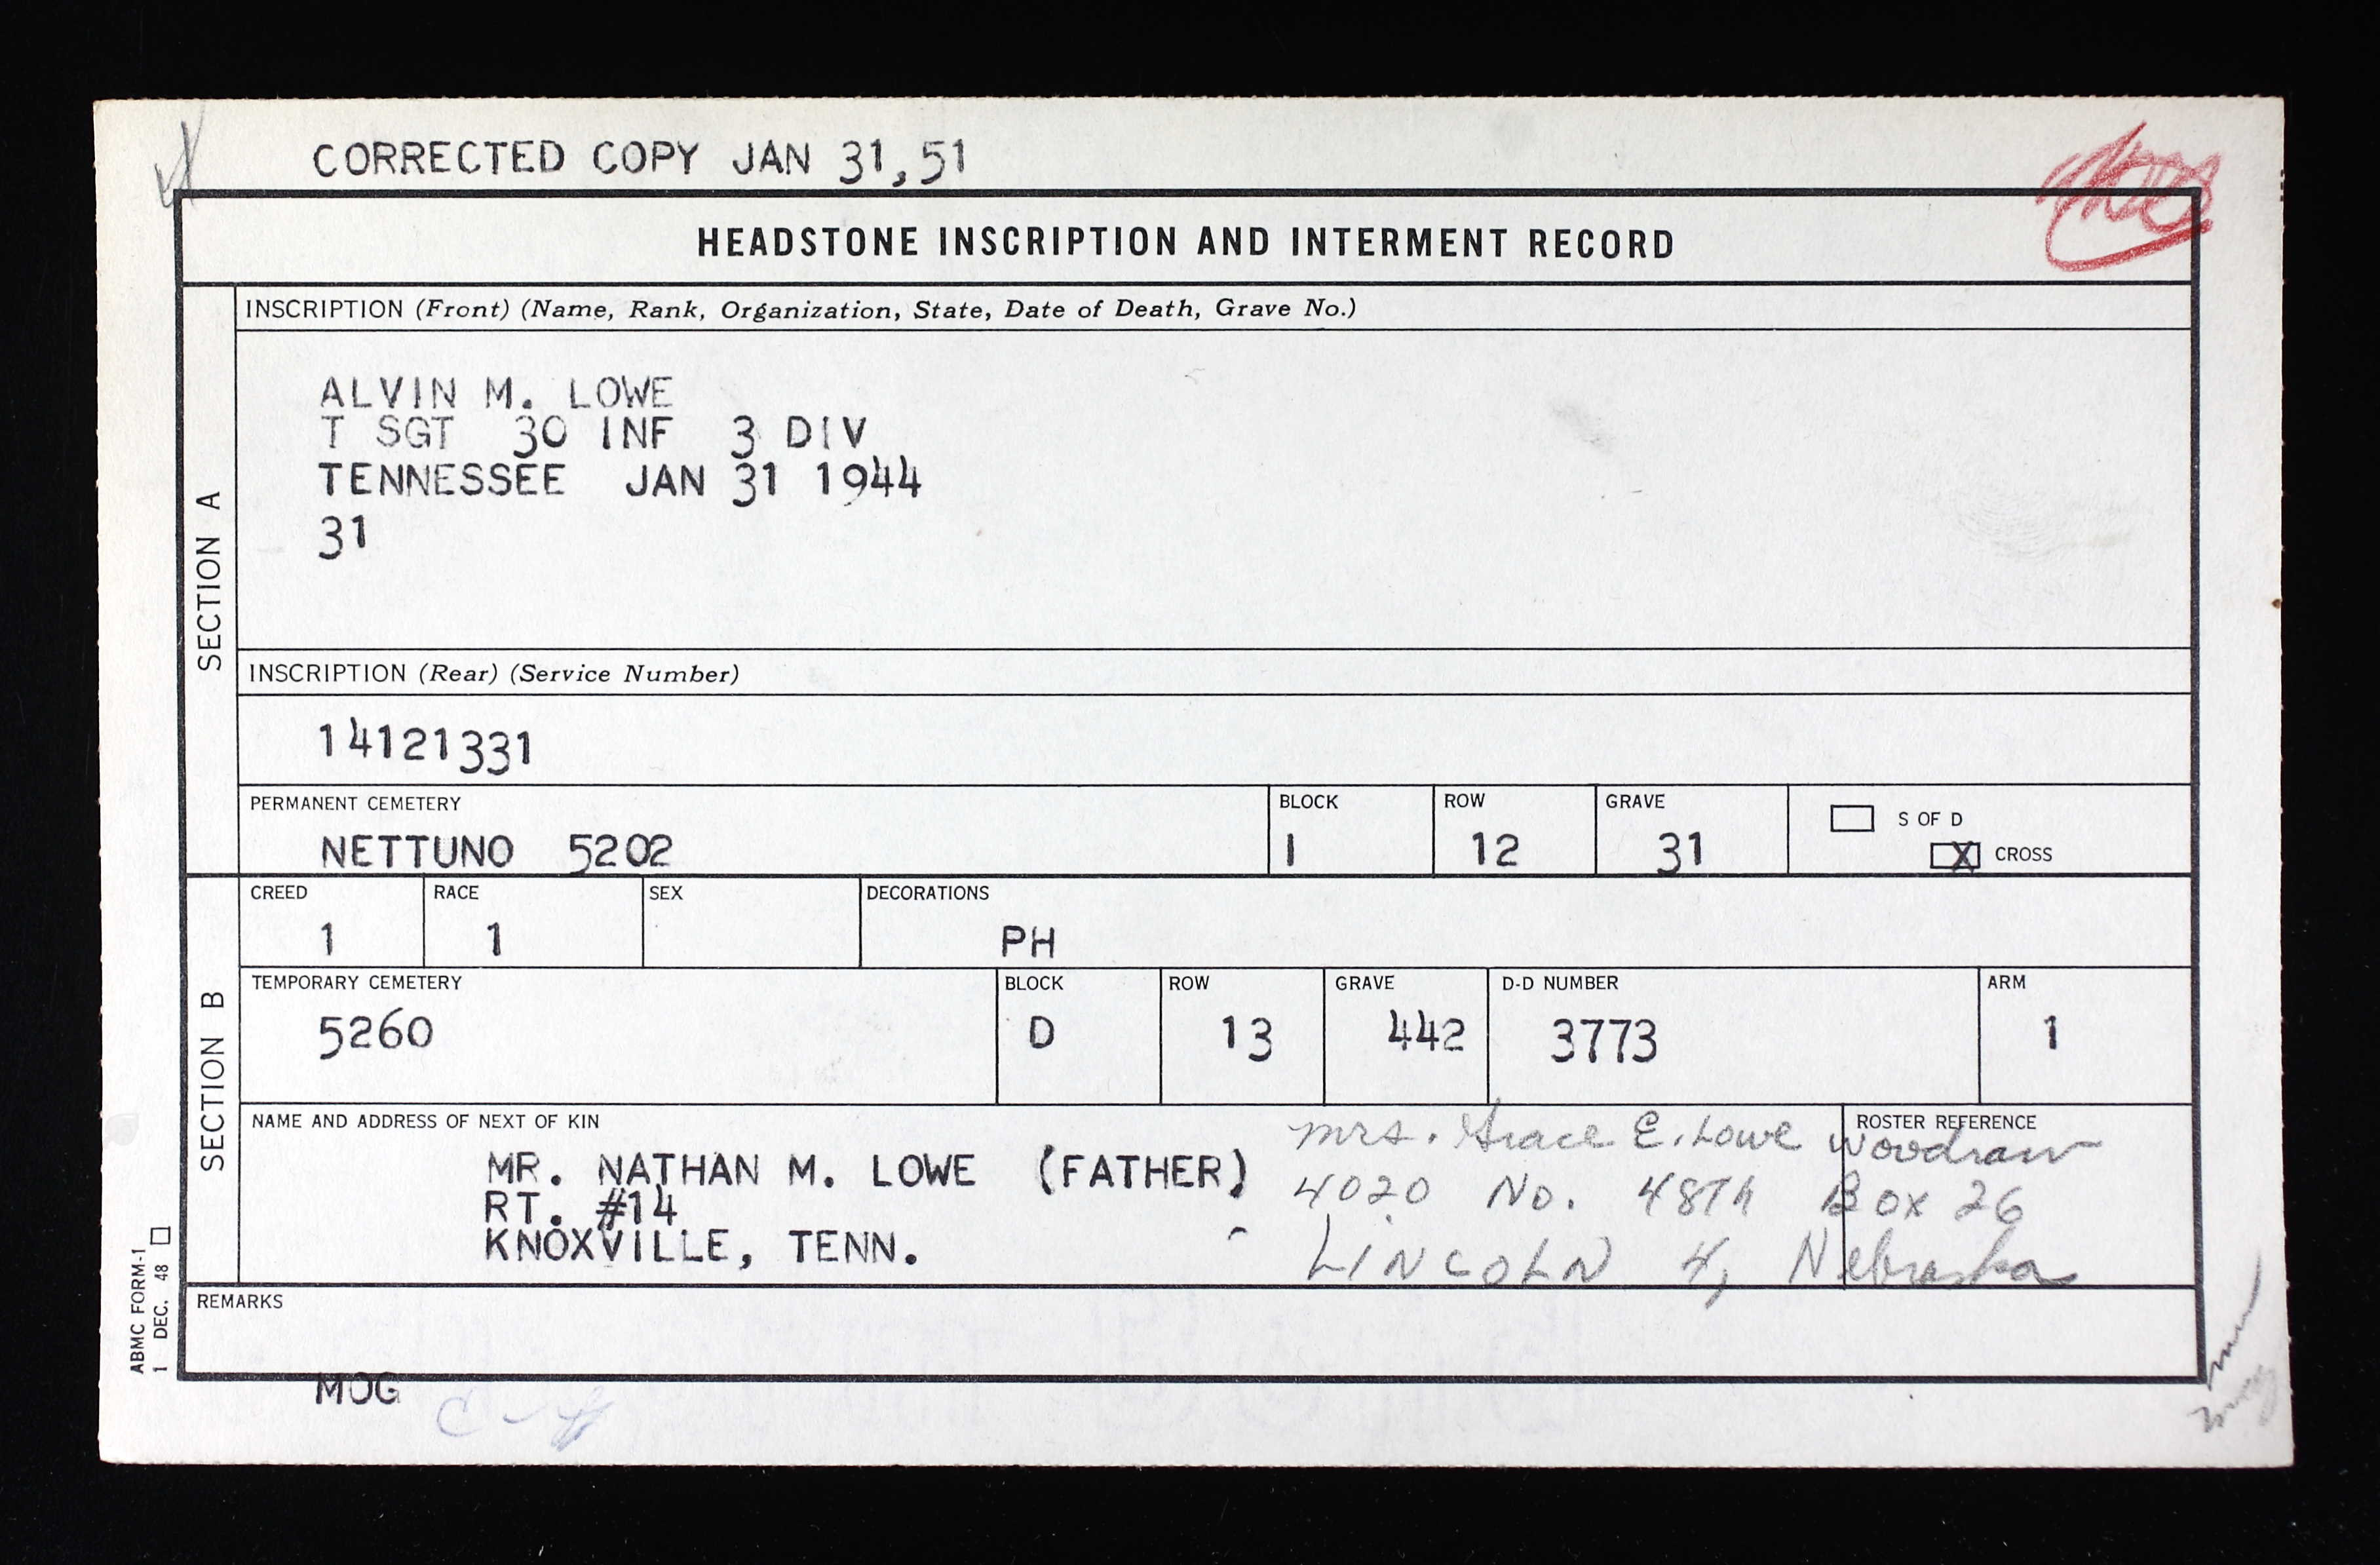 CORRECTED COPY JAN 31, 51
HEADSTONE INSCRIPTION AND INTERMENT RECORD
SECTION A
INSCRIPTION (Front) (Name, Rank, Organization, State, Date of Death, Grave No.)
ALVIN M. LOWE
T SGT 30 INF 3 DIV
TENNESSEE JAN 31 1944
31
INSCRIPTION (Rear) (Service Number)
14121331
PERMANENT CEMETERY BLOCK ROW GRAVE
NETTUNO 5202 I 12 31
S OF D
X CROSS
SECTION B
CREED RACE SEX DECORATIONS
1 1 PH
TEMPORARY CEMETERY BLOCK ROW GRAVE D-D NUMBER ARM
5260 D 13 442 3773 1
NAME AND ADDRESS OF NEXT OF KIN ROSTER REFERENCE
MR. NATHAN M. LOWE (FATHER)
RT. #14
KNOXVILLE, TENN.
Mrs. Grace E. Lowe
4020 No. 48th Box 26
LINCOLN 4, Nebraska
REMARKS
MOG
ABMC FORM-1
1 DEC. 48